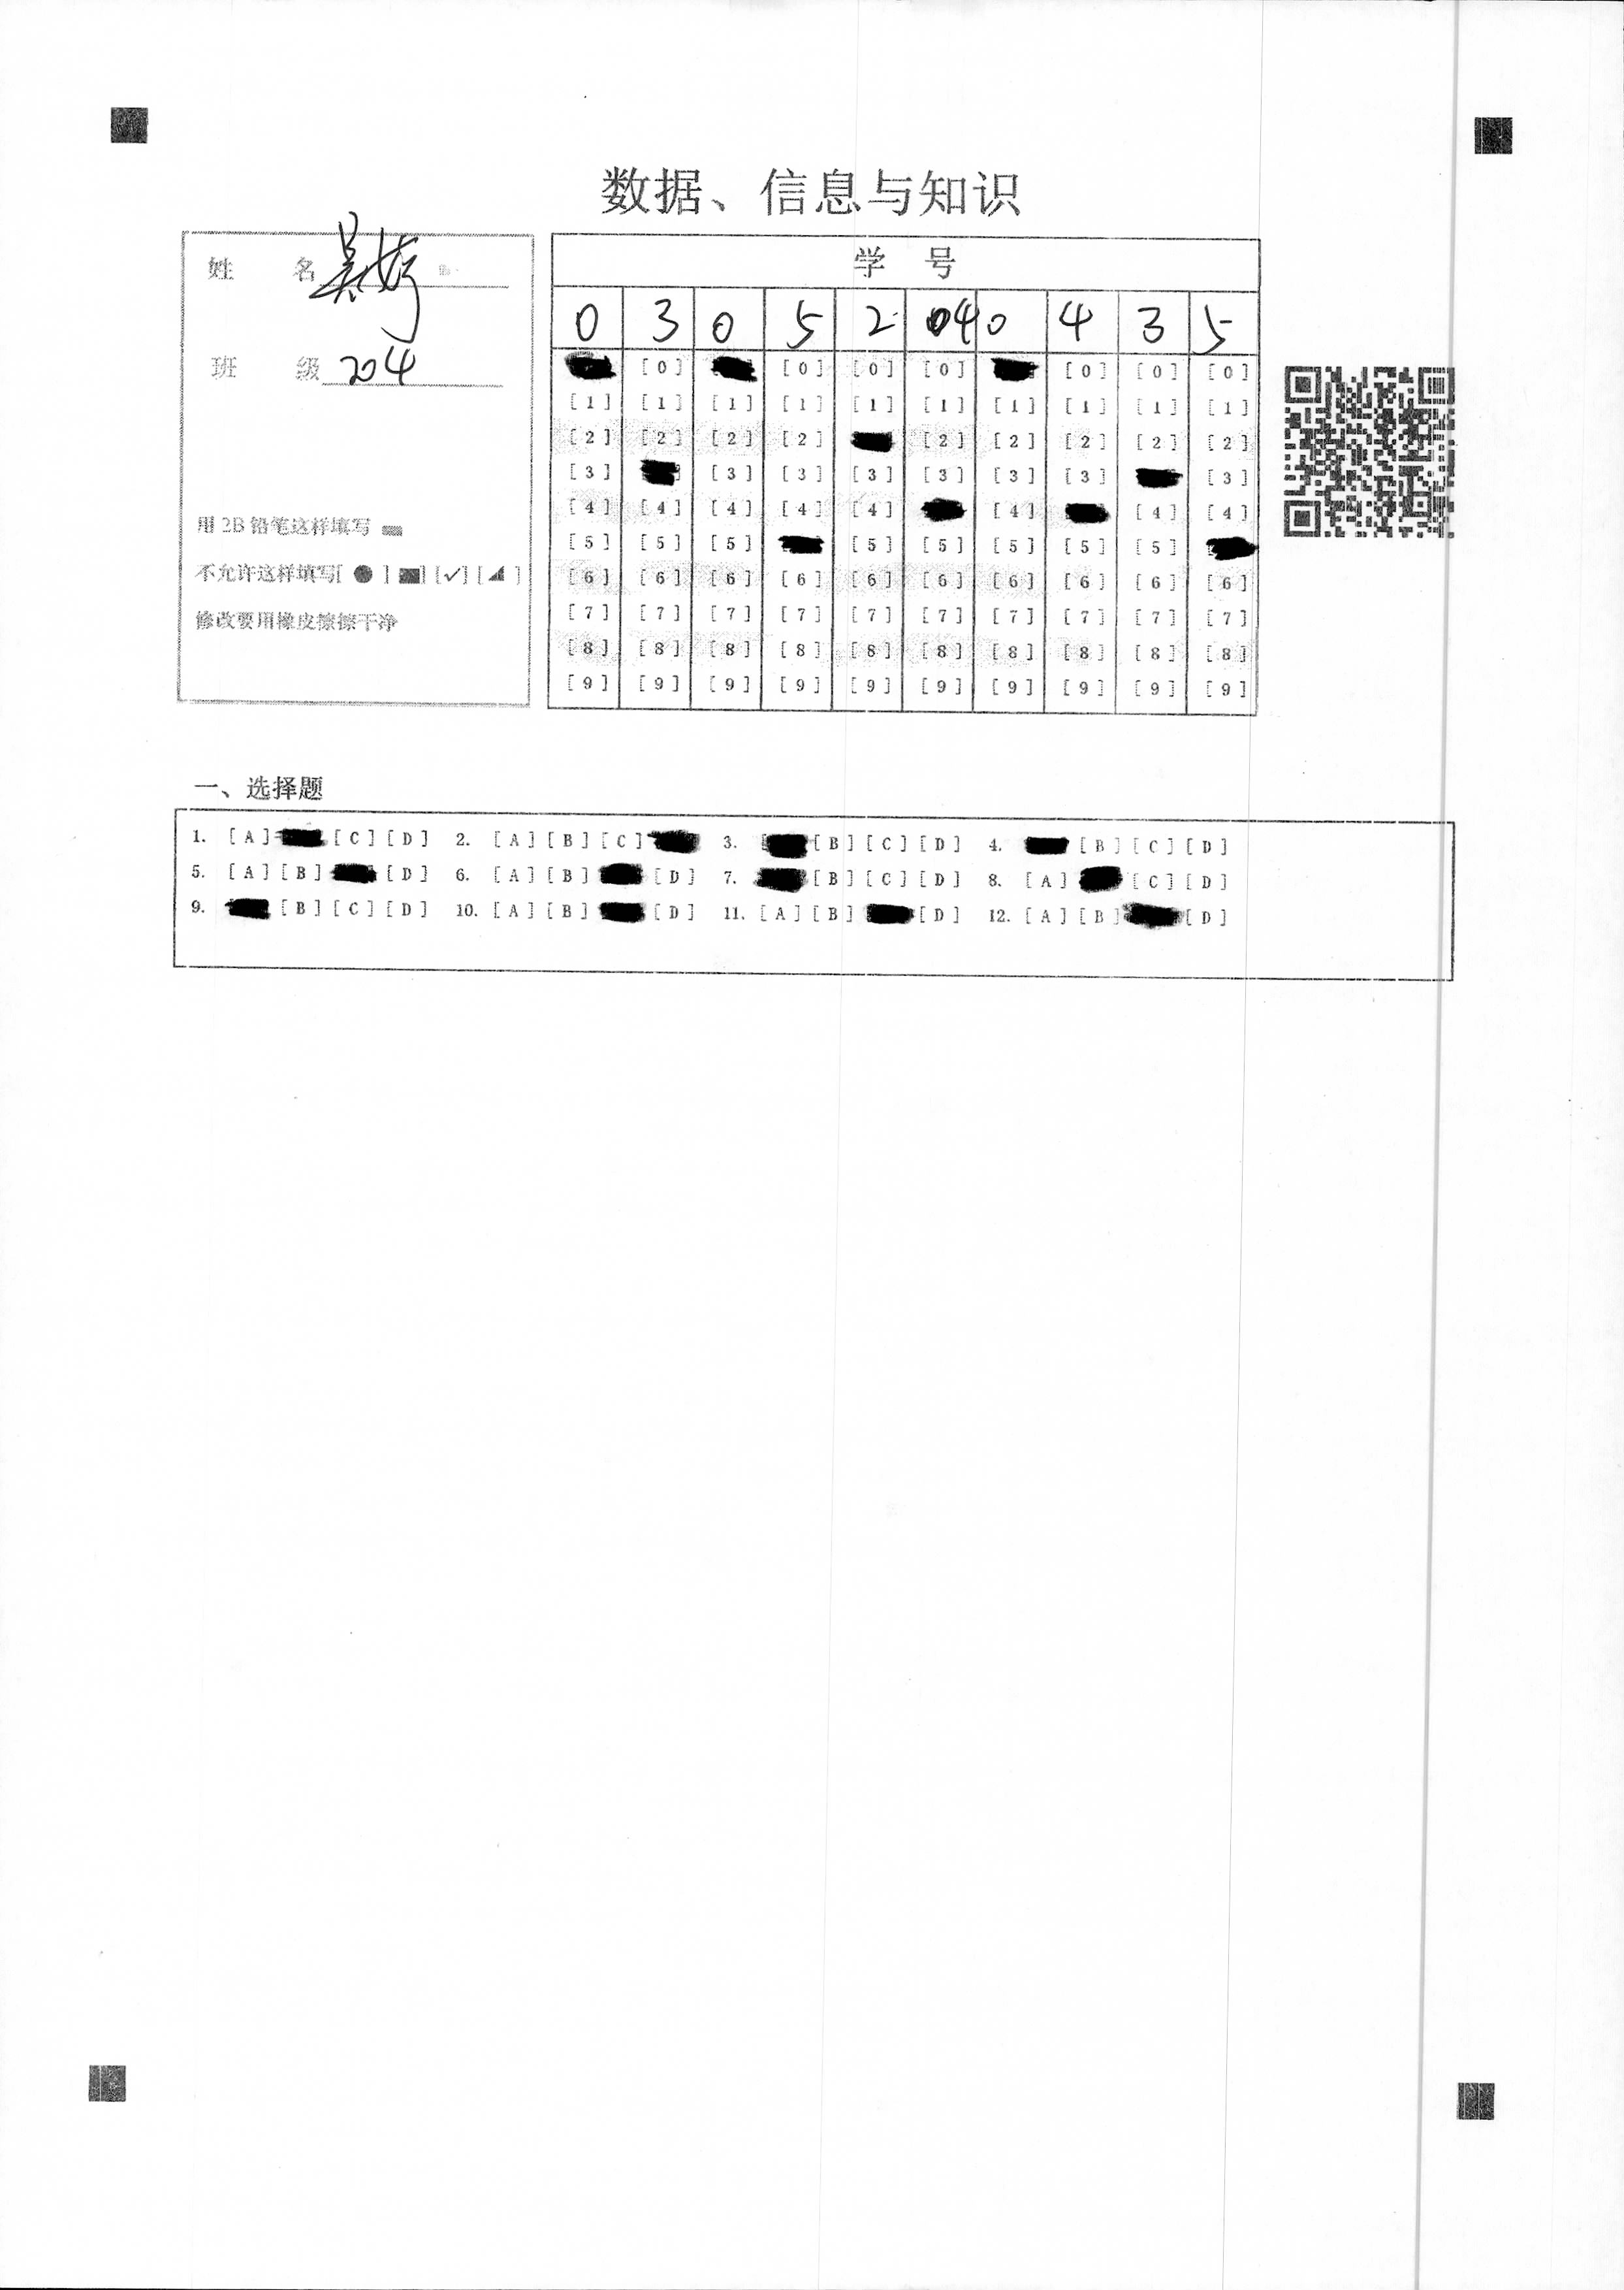 数据、信息与知识
姓 名 吴婷
班 级 204
用 2B 铅笔这样填写
不允许这样填写[ ● ] [■] [✓] [◢ ]
修改要用橡皮擦擦干净
学 号
0 3 0 5 2 04 0 4 3 5
[0] [0] [0] [0] [0] [0] [0]
[1] [1] [1] [1] [1] [1] [1] [1] [1] [1]
[2] [2] [2] [2] [2] [2] [2] [2] [2]
[3] [3] [3] [3] [3] [3] [3] [3]
[4] [4] [4] [4] [4] [4] [4] [4]
[5] [5] [5] [5] [5] [5] [5] [5]
[6] [6] [6] [6] [6] [6] [6] [6] [6] [6]
[7] [7] [7] [7] [7] [7] [7] [7] [7] [7]
[8] [8] [8] [8] [8] [8] [8] [8] [8] [8]
[9] [9] [9] [9] [9] [9] [9] [9] [9] [9]
一、选择题
1. [A] [C] [D] 2. [A] [B] [C] 3. [B] [C] [D] 4. [B] [C] [D]
5. [A] [B] [D] 6. [A] [B] [D] 7. [B] [C] [D] 8. [A] [C] [D]
9. [B] [C] [D] 10. [A] [B] [D] 11. [A] [B] [D] 12. [A] [B] [D]